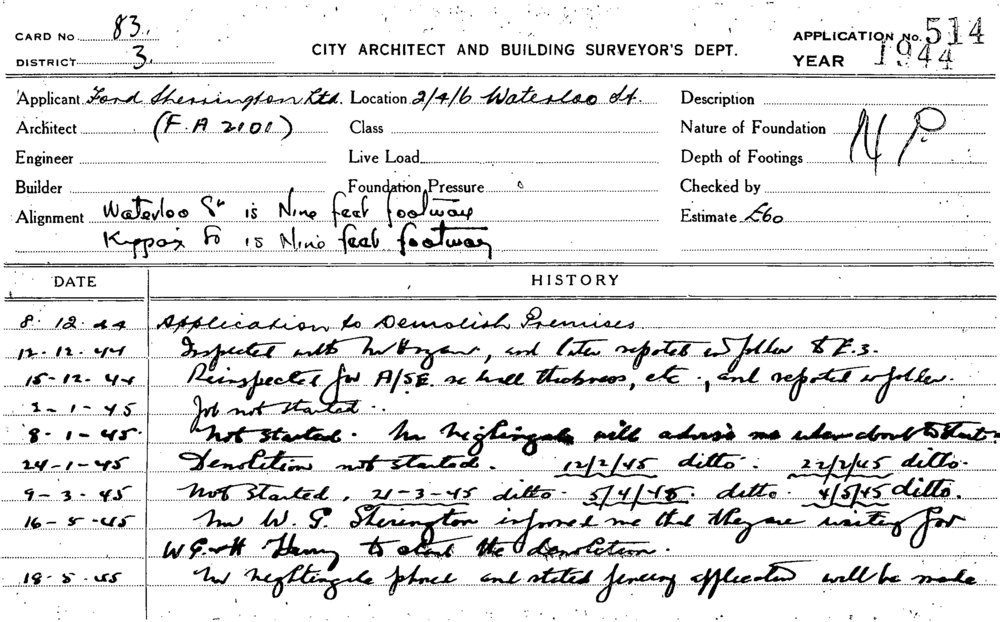 CARD No 83.
APPLICATION No. 514
DISTRICT 3.
CITY ARCHITECT AND BUILDING SURVEYOR'S DEPT.
YEAR 1944
Applicant Ford Sherington Ltd. Location 2/4/6 Waterloo St. Description
Architect (F.A 2101) Class Nature of Foundation N P.
Engineer Live Load Depth of Footings
Builder Foundation Pressure Checked by
Alignment Waterloo St is Nine feet footway Estimate £60
Kippax St is Nine feet footway
DATE HISTORY
8.12.44 Application to Demolish Premises
12-12-44 Inspected with Mr , and later reported in folder to E.3.
15-12-44 Reinspected for A/SE re wall thickness, etc., and reported in folder.
2-1-45 Job not started.
8-1-45. Not started. Mr Nightingale will advise me when about to start.
24-1-45 Demolition not started. 12/2/45 ditto. 22/2/45 ditto.
9-3-45 Not started, 21-3-45 ditto. 5/4/45. ditto. 4/5/45 ditto.
16-5-45 Mr W. G. Sherington informed me that they are waiting for
W G & H to start the demolition.
Mr Nightingale phoned and stated fencing application will be made